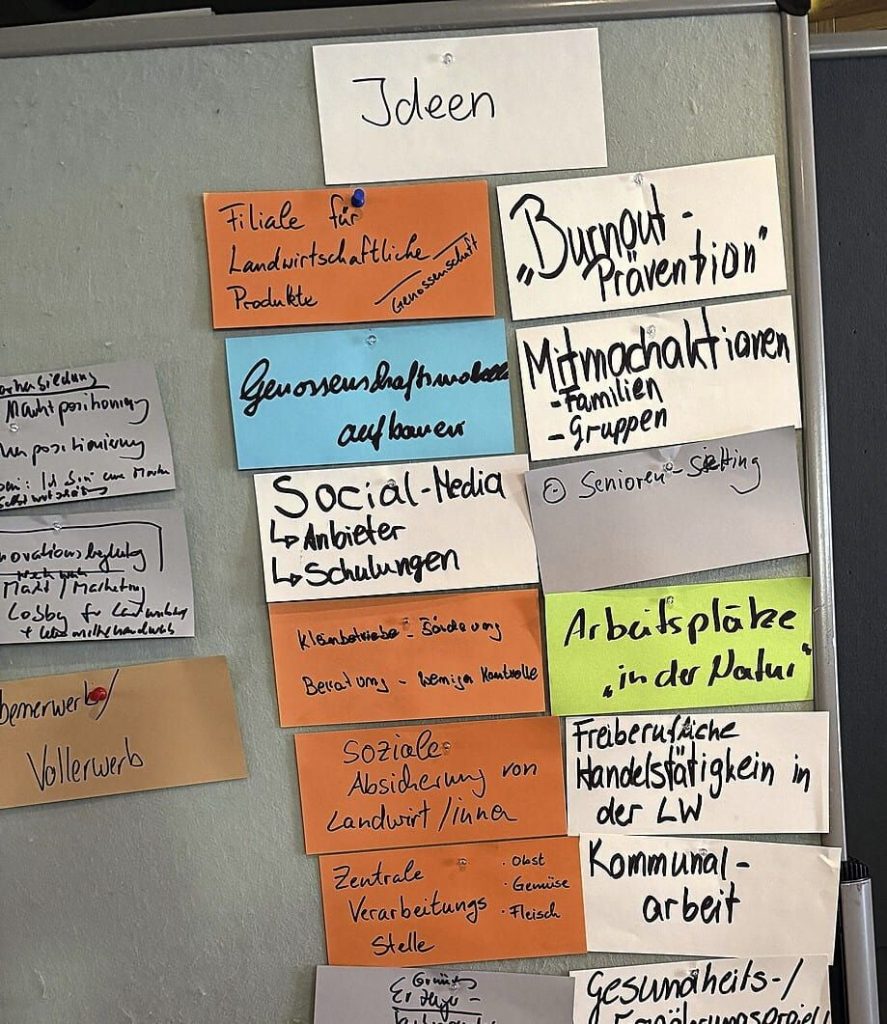 Ideen
Filiale für
Landwirtschaftliche
Produkte
Genossenschaft
„Burnout-
Prävention"
Genossenschaftsmodelle
aufbauen
Mitmachaktionen
- Familien
- Gruppen
Social-Media
↳ Anbieter
↳ Schulungen
Senioren-
Kleinbetriebe - Förderung
Beratung - weniger Kontrolle
Arbeitsplätze
„in der Natur"
Soziale
Absicherung von
Landwirt/innen
Freiberufliche
Handelstätigkein in
der LW
Zentrale
Verarbeitungs
Stelle
· Obst
· Gemüse
· Fleisch
Kommunal-
arbeit
Gesundheits-/
Marktpositionierung
Markt/Marketing
Vollerwerb